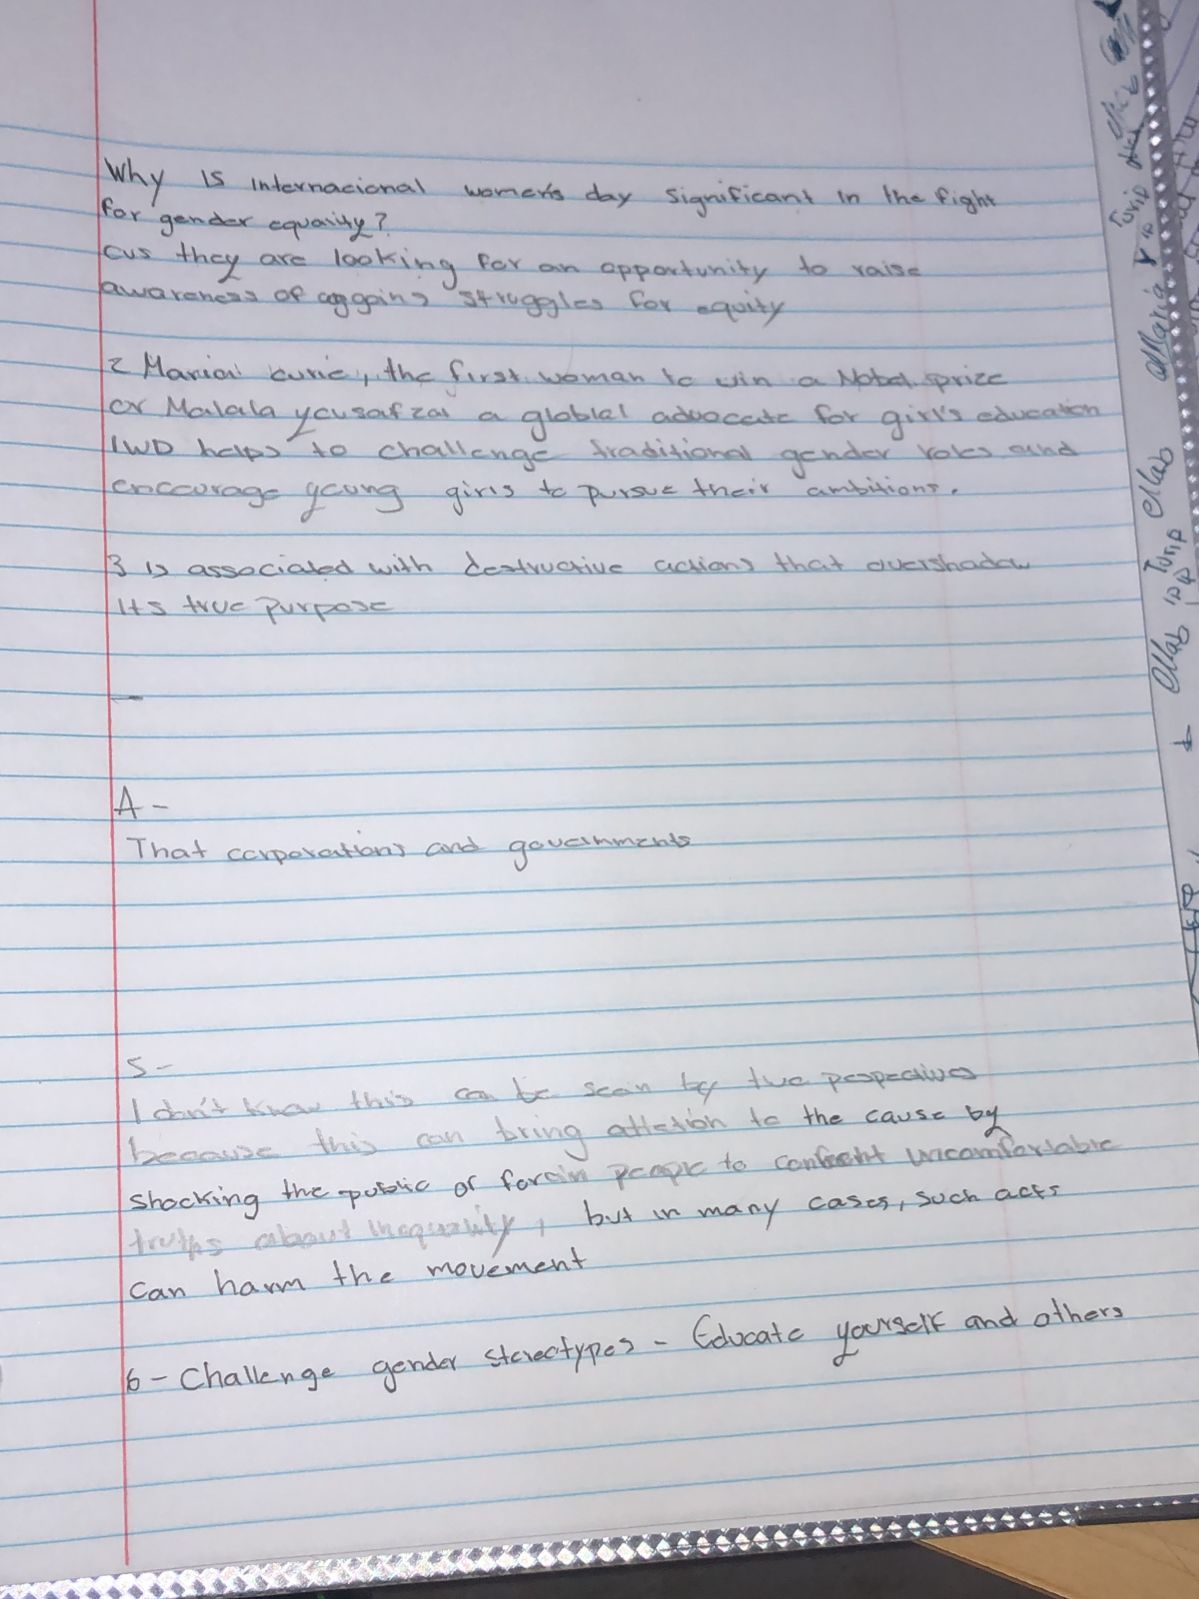 Why is internacional women's day significant in the fight
for gender equality?
cus they are looking for an opportunity to raise
awareness of struggles for equity
2 Marion curie, the first woman to win a Nobel sprize
or Malala yousafzai a globlal advocate for girl's education
IWD helps to challenge traditional gender roles and
encourage young girls to pursue their ambitions.
3 is associated with destructive actions that overshadow
its true purpose
A-
That corporations and governments
5-
I don't know this can be seain by two pespectives
because this can bring attetion to the cause by
shocking the public of forcin people to uncomfortable
truths about inequality, but in many cases, such acts
can harm the movement
6- Challenge gender stereotypes - Educate yourself and others
Turip
Maria
Turip